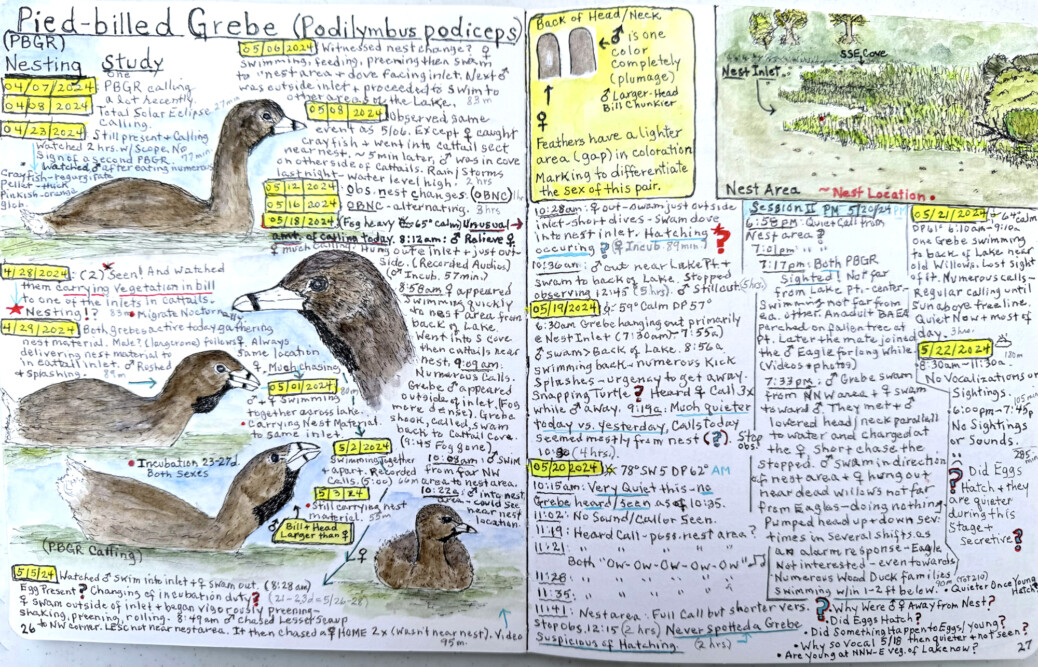 Pied-billed Grebe (Podilymbus podiceps)
(PBGR)
Nesting Study
04/07/2024 one PBGR calling
04/08/2024 a lot recently
Total Solar Eclipse 27m
Calling.
04/23/2024 Still present + Calling
Watched 2 hrs. w/Scope. No
Sign of a second PBGR. 77min
Watched ♂ after eating numerous
Crayfish-regurgitate
Pellet - thick
Pinkish-orange
glob.
4/28/2024 : (2) Seen! And Watched
them carrying vegetation in bill
to one of the inlets in Cattails.
Nesting!? 83m • Migrate Nocturnally
4/29/2024 Both grebes active today gathering
nest material. Male? (longtrome) follows ♀. Always
delivering nest material to same location
in cattail inlet. ♂ Rushed ♀. Much chasing
+ Splashing. 89m
05/01/2024 80m
♂ + ♀ Swimming
together across lake.
• Carrying Nest Material
to same inlet.
• Incubation 23-27d.
Both Sexes
5/2/2024
Swimming together
+ apart. Recorded
Calls. (5:00) 66m
5/3/24
• Still carrying nest
material. 55m
Bill + Head
Larger than ♀
(PBGR Calling)
♀
5/5/24 Watched ♂ swim into inlet + ♀ swam out. (8:28am)
Egg Present? Changing of incubation duty? (21-23d = 5/26-28)
♀ swam outside of inlet + began vigorously preening-
shaking, preening, rolling. 8:49am ♂ Chased Lesser Scaup
to NW corner. LESC not near nest area. It then chased a ♀ HOME 2x (Wasn't near nest). Video
95m.
26
05/06/2024 Witnessed nest change? ♀
Swimming, feeding, preening then swam
to "nest area + dove facing inlet. Next ♂
was outside inlet + proceeded to swim to
other areas of the Lake. 83m
05/08/2024 Observed same
event as 5/06. Except ♀ caught
crayfish + went into cattail sect
near nest. ~5 min later, ♂ was in cove
on other side of Cattails. Rain/Storms
last night - Water level high. 2 hrs
05/12/2024 Obs. nest changes. (OBNC)
05/16/2024 OBNC - alternating. 3hrs
05/18/2024 (Fog heavy 65° calm) Unusual →
amt. of calling today. 8:12am: ♂ Relieve ♀
♀ much calling. Hung outside inlet + just out-
side. (Recorded Audios)
(♂ Incub. 57 min)
8:58am ♀ appeared
Swimming quickly
to nest area from
back of Lake.
Went into S cove
then cattails near
nest. 9:09am:
Numerous Calls.
Grebe ♂ appeared
outside of inlet. (Fog
more dense). Grebe
shook, called, swam
back to Cattail Cove.
(9:45 Fog gone)
10:08am: ♂ Swim
from far NW
area to nest area.
10:22a: ♂ into nest
area - could see
near nest
location.
Back of Head/Neck
← ♂ is one
color
completely
(plumage)
♂ Larger-Head
Bill Chunkier
♀
Feathers have a lighter
area (gap) in coloration.
Marking to differentiate
the sex of this pair.
SSE Cove
Nest Inlet
Nest Area ~ Nest Location •
10:28am: ♀ out - swam just outside
inlet - short dives - swam dove
into nest inlet. Hatching
occuring? (♀ Incub 89min)?
10:36am: ♂ out near Lake Pt +
swam to back of Lake. Stopped
observing 12:45 (5 hrs). ♂ Still out
05/19/2024 59° Calm DP 57°
6:30am Grebe hanging out primarily
@ Nest Inlet (7:30am - 7:55a)
♂ swam > Back of Lake. 8:56a
Swimming back - numerous Kick
Splashes - urgency to get away.
Snapping Turtle? Heard ♀ Call 3x
while ♂ away. 9:19a: Much quieter
today vs. yesterday, Calls today
seemed mostly from nest (?). Stop
obs.
(4 hrs.)
05/20/2024 78° SW 5 DP 62° AM
10:15am: Very Quiet this - no
Grebe heard/seen as of 10:35.
11:02: No Sound/Call or Seen.
11:19 Heard Call - poss. nest area?
11:21 " " " "
Both "Ow-Ow-Ow-Ow-Ow"
11:28: " " " " "
11:35: " " " " "
11:41: Nest area: Full Call but shorter vers.
Stop Obs. 12:15 (2 hrs) Never spotted a Grebe
Suspicious of Hatching. (2 hrs)
Session II PM 5/20/24
6:58pm: Quiet Call from
Nest area?
7:01pm: " "
7:17pm: Both PBGR
Sighted! Not far
from Lake Pt. - center.
Swimming not far from
ea. other. An adult BAEA
perched on fallen tree at
pt. Later the mate joined
the ♂ Eagle for long while
(Videos + photos)
7:33pm: ♂ Grebe swam
from NNW area + ♀ swam
toward ♂. They met + ♂
lowered head/neck parallel
to water and charged at
the ♀, short chase the
stopped. ♂ swam in direction
of nest area + ♀ hung out
near dead willows not far
from Eagles - doing nothing.
Pumped head up + down sev.
times in several shifts as
an alarm response - Eagle
Not interested - even towards
Numerous Wood Duck families
Swimming w/in 1-2 ft below. 90m (tot 210)
05/21/2024 64° calm
DP 61° 6:10am-9:10a
One Grebe swimming
to back of Lake near
old Willows. Lost sight
of it. Numerous calls-
Regular calling until
Sun above treeline.
Quiet Now + most of
day. 3hrs.
05/22/2024
8:30am - 11:30
No Vocalizations or
Sightings. 105min
6:00pm - 7:45p
No Sightings
or Sounds.
285 min
? Did Eggs
Hatch + they
are quieter
during this
Stage +
Secretive?
• Quieter Once Young Hatch?
? Why Were ♂♀ Away from Nest?
• Did Eggs Hatch?
• Did Something Happen to Eggs/young?
• Why so Vocal 5/18 then quieter + not seen?
• Are Young at NNW-E veg. of Lake now?
27